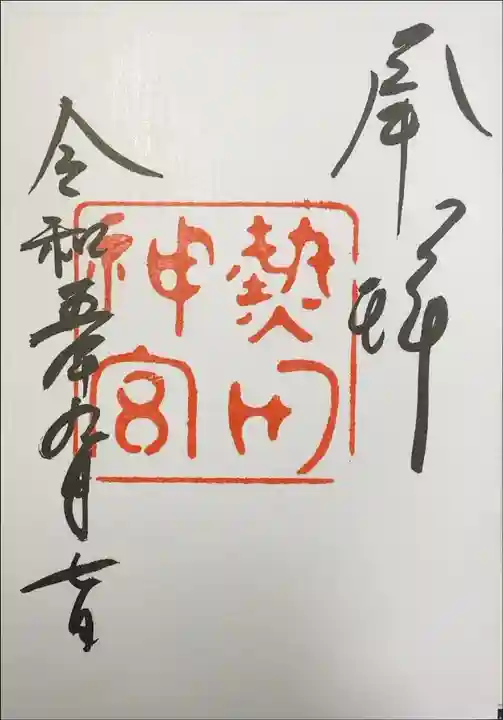 奉拝
熱田神宮
令和五年九月七日